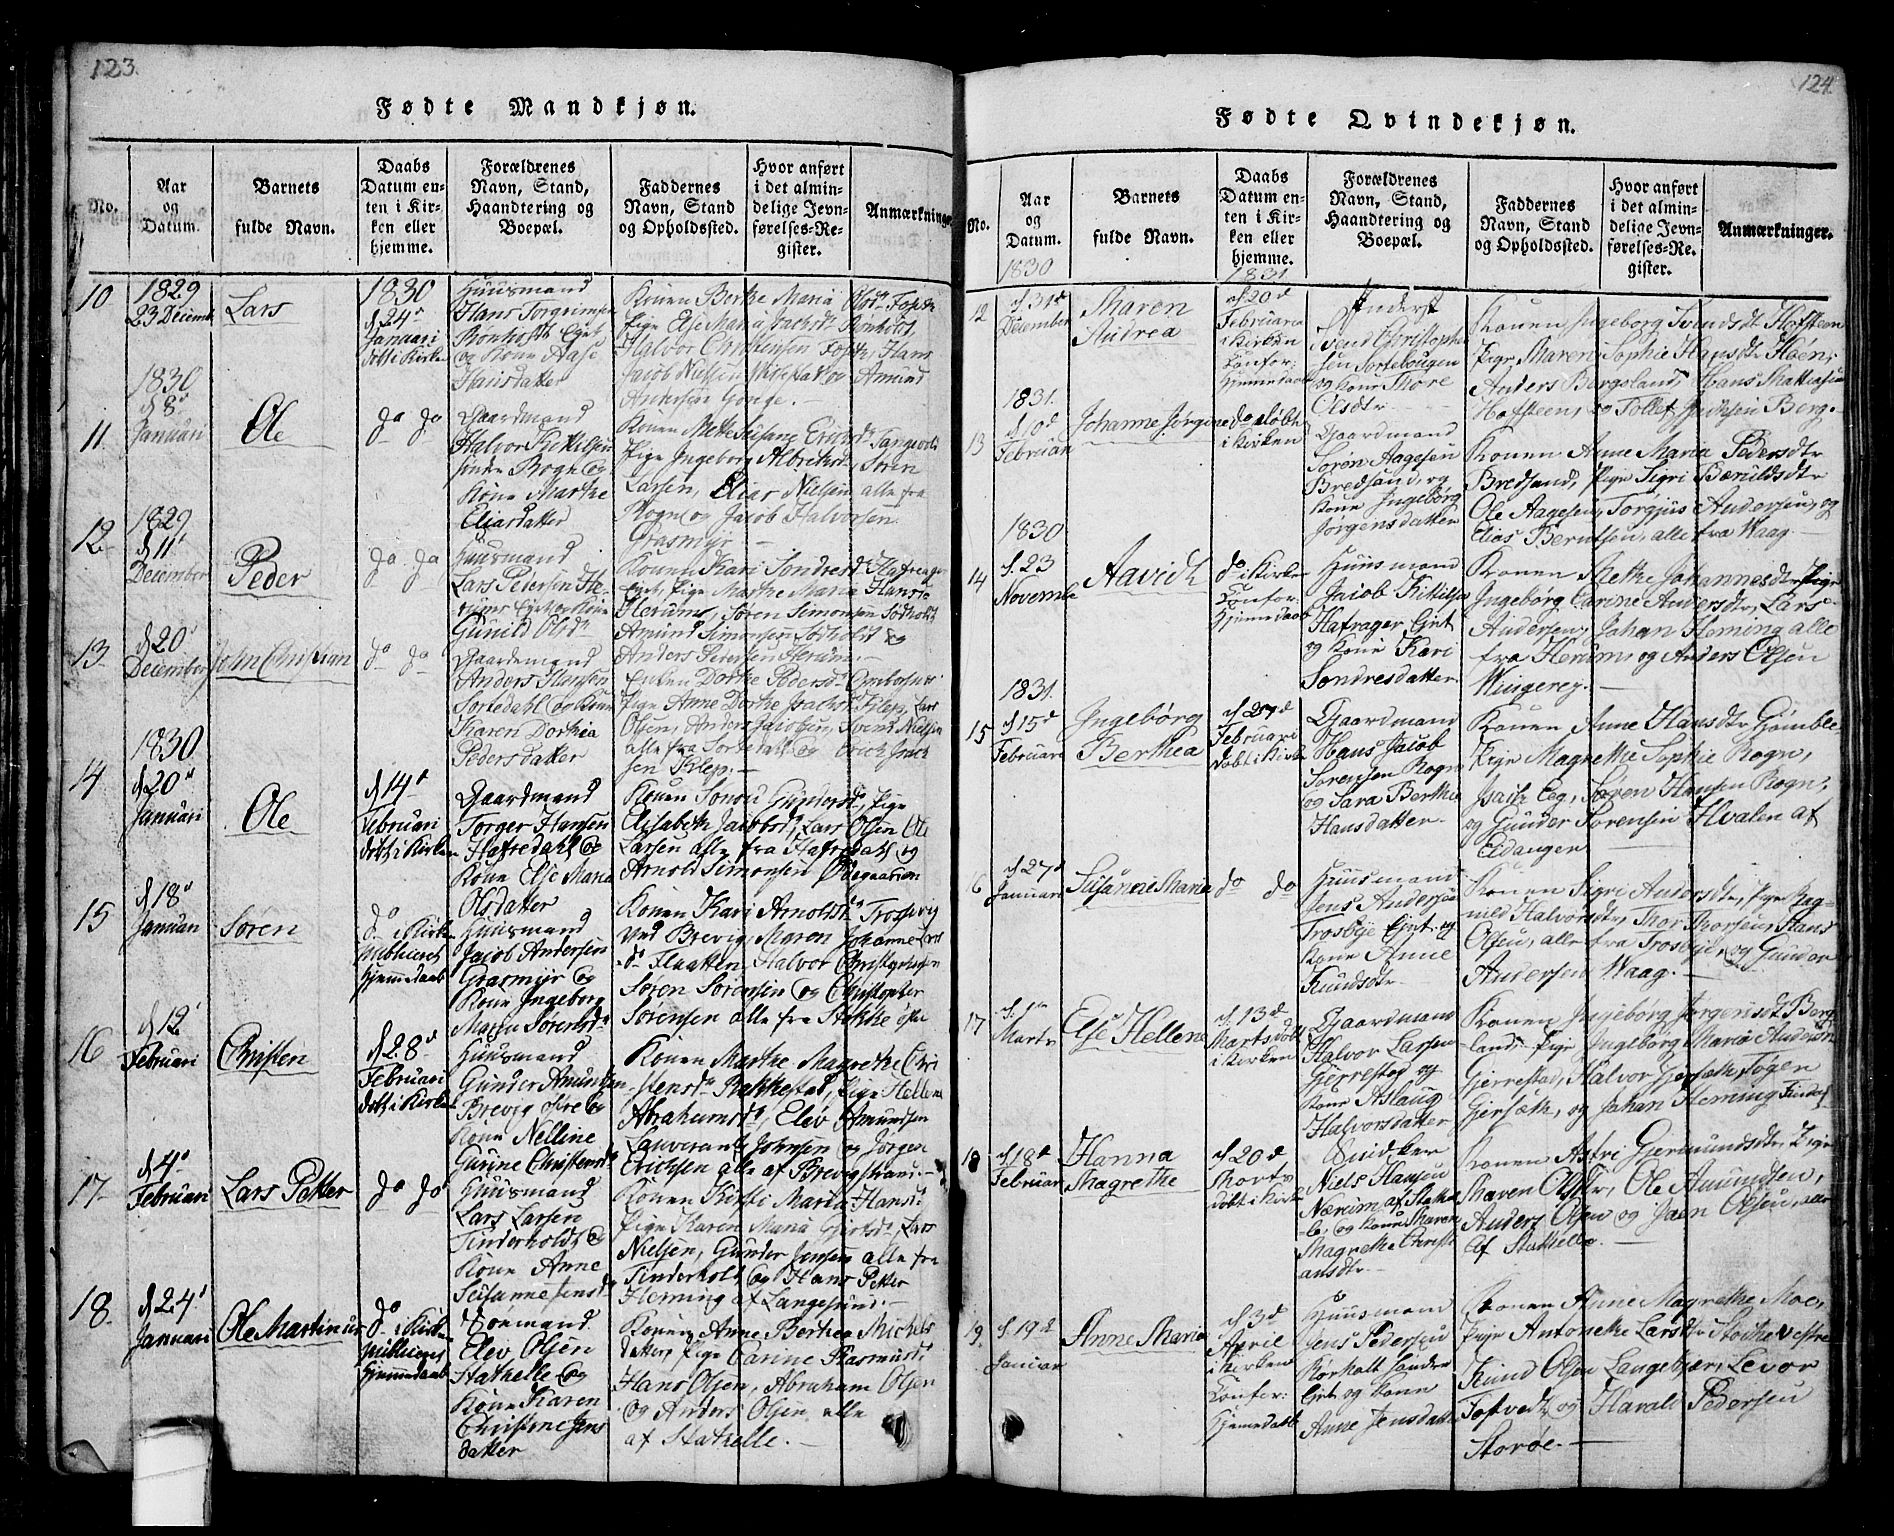 123.
Fødte Mandkjøn.
No.
Aar og Datum.
Barnets fulde Navn.
Daabs Datum enten i Kirken eller hjemme.
Forældrenes Navn, Stand, Haandtering og Boepæl.
Faddernes Navn, Stand og Opholdssted.
Hvor anført i det almindelige Jevnførelses-Register.
Anmærkninger
10
1829
23 Decemb
Lars
1830
d 24de
Januari
døbt i Kirke
Huusmand
Hans Torgrimsen
Rønholt Eget
og Kone Aase
Hansdatter
Konen Berthe Maria Olsdr
Pige Else Maria Jachdt Rønholt,
Halvor Christensen
Jacob Nielsen
Andersen Gonge.
11.
1830
d 8de
Januari
Ole
do do
Gaardmand
Halvor Kittilsen
Rogn og
Kone Marthe
Eliasdatter
Konen Mette Susane Ericksdr Tangevald
Pige Ingeborg Albretsdr, Søren
Larsen, Elias Nielsen alle fra
Rogn og Jacob Halvorsen
Grasmyr
12
1829
d 11te
December
Peder
do do
Huusmand
Lars Petersen
Herum Eget og Kone
Gunild Olsdr
Konen Kari Søndresdr Hafrager
Eget, Pige Marthe Maria Hansdr
Herum, Søren Simonsen Sødholt
Amund Simonsen Sødholt og
Anders Pedersen Herum.
13.
d 20de
December
John Christian
do do
Gaardemand
Anders Hansen
Sortedahl og Kone
Karen Dorthea
Pedersdatter
Enken Dorthe Pedersdr
Pige Anne Dorthe Jachsdr Klep, Lars
Olsen, Anders Jacobsen, Svend Nielsen
alle fra Sortedahl og Erick Jack
sen Klep.
4
1830
d 20de
Januari
Ole
d 14de
Februari
døbt i Kirken
Gaardmand
Torger Hansen
Hafredahl og
Kone Else Maria
Olsdatter
Konen Gundersdr, Pige
Elisabeth Jacobsdr, Lars Olsen Ole
Larsen alle fra Hafredahl og
Arnold Simonsen Ødegaarden
15
d 18de
Januari
Søren
do i Kirken
publiceret
Hjemmedaab
Huusmand
Jacob Andersen
Grasmyr og
Kone Ingeborg
Maria Sørensdr
Konen Kari Arnoldsdr Trosvig
ved Brevig, Maren Johanne Lars
dr Flaatten, Halvor Christensen
Søren Sørensen og Christopher
Sørensen alle fra Stokke østre
16
d 12te
Februari
Christen
d 28de
Februari
døbt i Kirke
Huusmand
Gunder Amundsen
Brevig østre og
Kone Nelline
Gurine Christensdr
Konen Marthe Magrethe Chri
stensdr Bakkestad, Pige Hellene
Abrahamsdr, Elev Amundsen
Lauverants Johnsen og Jørgen
Erichsen alle af Brevigstrand.
17.
d 4de
Februari
Lars Petter
do do
Huusmand
Lars Larsen
Tinderholt og
Kone Anne
Susanne Jensdr
Konen Kisti Maria Hansdr
Pige Karen Maria Gjertsdr, Lars
Nielsen, Gunder Jensen alle fra
Tinderholt og Hans Petter
Heming af Langesund.
18.
d 24de
Januari
Ole Martinus
do i Kirken
publiceret
Hjemmedaab
Søemand
Elev Olsen
Stathelle og
Kone Karen
Christine Jens
datter
Konen Anne Berthea Michels
datter, Pige Carine Rasmusdr
Hans Olsen, Abraham Olsen
og Anders Olsen alle
af Stathelle.
124.
Fødte Qvindekjøn.
No.
Aar og Datum.
Barnets fulde Navn.
Daabs Datum enten i Kirken eller hjemme.
Forældrenes Navn, Stand, Haandtering og Boepæl.
Faddernes Navn, Stand og Opholdssted.
Hvor anført i det almindelige Jevnførelses-Register.
Anmærkninger.
12
1830
d 31de
December
Maren
Andrea
1831
d 20de
Februarii
i Kirken
Confor:
Hjemmedaab
Inderst
Svend Christophe
sen Sortebougen
og Kone Thore
Olsdtr
Konen Ingeborg Svendsdtr Hafsteen
Pige Maren Sophie Hansdtr Høen,
Anders Bergsland, Hans Mathiasen
Hafsteen, og Tollef Jachsen Berg.
13
1831.
d 10d
Februari
Johanne Jørgine
do døbt
i Kirken
Gaardmand
Søren Aagesen
Bredsand, og
Kone Ingebørg
Jørgensdatter
Konen Anne Maria Pedersdtr
Bredsand, Pige Sigri Bærulddtr
Ole Aagesen, Torgjus Andersen, og
Elias Berntsen, alle fra Waag.
14
1830
d. 23
Novembr
Aavidh
do i Kirken
Confor:
Hjemmedaab
Huusmand
Jacob Kittilsen
Hafrager Eget
og Kone Kari
Søndresdatter
Konen Methe Johannesdtr, Pige
Ingebørg Carine Andersdtr, Lars
Andersen, Johan Heming alle
fra Herum, og Anders Olsen
Wingerey.
15
1831.
d 15d
Februari
Ingebørg
Berthea
d 27d
Februari
døbt i Kirke
Gaardmand
Hans Jacob
Sørensen Rogn
og Sara Berthe
Hansdatter
Konen Anne Hansdtr Gjømble
Pige Magrethe Sophie Rogn,
Isach Eeg, Søren Hansen Rogn,
og Gunder Sørensen Hvalen af
Eidanger
16
d 27d
Januari
Susanne Maria
do do
Huusmand
Jens Andersen
Trosbye Eget og
Kone Anne
Knudsdtr
Konen Sigri Andersdtr, Pige Rag-
nild Halvorsdtr, Thor Thorsen, Hans
Olsen, alle fra Trosbye, og Gunder
Andersen Waag.
17
d. 1te
Marts
Else Hellene
d. 13d
Marts døbt
i Kirken
Gaardmand
Halvor Larsen
Gjerrestad og
Kone Aslaug
Halvorsdatter
Konen Ingebørg Jørgensdtr Berg-
land, Pige Ingebørg Maria Andersdtr
Gjerrestad, Halvor Gjerseth, Tøgen
Gjerseth, og Johan Heming
18
d 18d
Februari
Hanna
Magrethe
d 20d
Marts
døbt i Kirke
Snidker
Niels Hansen
Nærum af Stathel
le, og Kone Maren
Magrethe Christi
ansdtr.
Konen Astri Gjermundsdtr, Pige
Maren Olsdtr, Ole Amundsen,
Anders Olsen og Jaen Olsen, alle
af Stathelle.
19.
d. 19d
Januari
Anne Maria
d 3d
April
i Kirken
Confor:
Hjemmedaab
Huusmand
Jens Pedersen
Rørholt Søndre
Eget og Kone
Anne Jensdatter
Konen Anne Magrethe Moe,
Pige Antonethe Larsdtr Stothe vestre
Knud Olsen Langebjer, Levor
Tostvedt, og Harald Pedersen
Storøe.